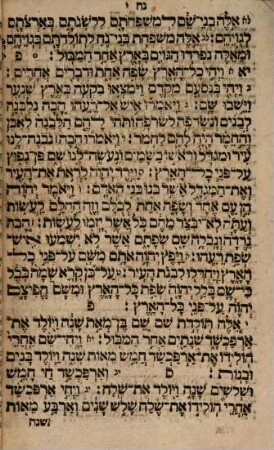 נח י
אלה בני־שם למשפחתם ללשנתם בארצתם
לגויהם: אלה משפחת בני־נח לתולדתם בגויהם
ומאלה נפרדו הגוים בארץ אחר המבול: פ
יא ויהי כל־הארץ שפה אחת ודברים אחדים:
ויהי בנסעם מקדם וימצאו בקעה בארץ שנער
וישבו שם: ויאמרו איש אל־רעהו הבה נלבנה
לבנים ונשרפה לשרפה ותהי להם הלבנה לאבן
והחמר היה להם לחמר: ויאמרו הבה נבנה־לנו
עיר ומגדל וראשו בשמים ונעשה־לנו שם פן־נפוץ
על־פני כל־הארץ: וירד יהוה לראת את־העיר
ואת־המגדל אשר בנו בני האדם: ויאמר יהוה
הן עם אחד ושפה אחת לכלם וזה החלם לעשות
ועתה לא־יבצר מהם כל אשר יזמו לעשות: הבה
נרדה ונבלה שם שפתם אשר לא ישמעו איש
שפת רעהו: ויפץ יהוה אתם משם על־פני כל־
הארץ ויחדלו לבנת העיר: על־כן קרא שמה בבל
כי־שם בלל יהוה שפת כל־הארץ ומשם הפיצם
יהוה על־פני כל־הארץ: פ
אלה תולדת שם שם בן־מאת שנה ויולד את־
ארפכשד שנתים אחר המבול: ויהי־שם אחרי
הולידו את־ארפכשד חמש מאות שנה ויולד בנים
ובנות: ס וארפכשד חי חמש
ושלשים שנה ויולד את־שלח: ויחי ארפכשד
אחרי הולידו את־שלח שלש שנים וארבע מאות
שנה